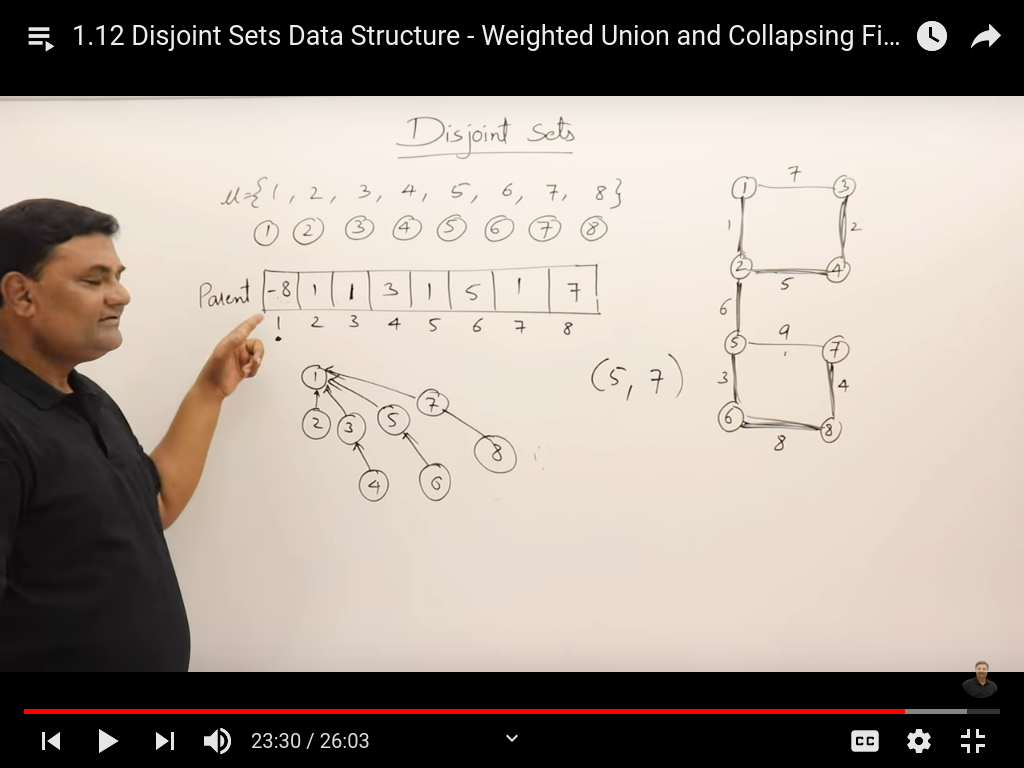 1.12 Disjoint Sets Data Structure - Weighted Union and Collapsing Fi...
Disjoint Sets
μ={1, 2, 3, 4, 5, 6, 7, 8}
1 2 3 4 5 6 7 8
Parent -8 1 1 3 1 5 1 7
1 2 3 4 5 6 7 8
1
2 3 5 7
8
4 6
(5, 7)
7
1 3
1 2
2 4
5
6
9
5 7
3 4
6 8
8
23:30 / 26:03
CC